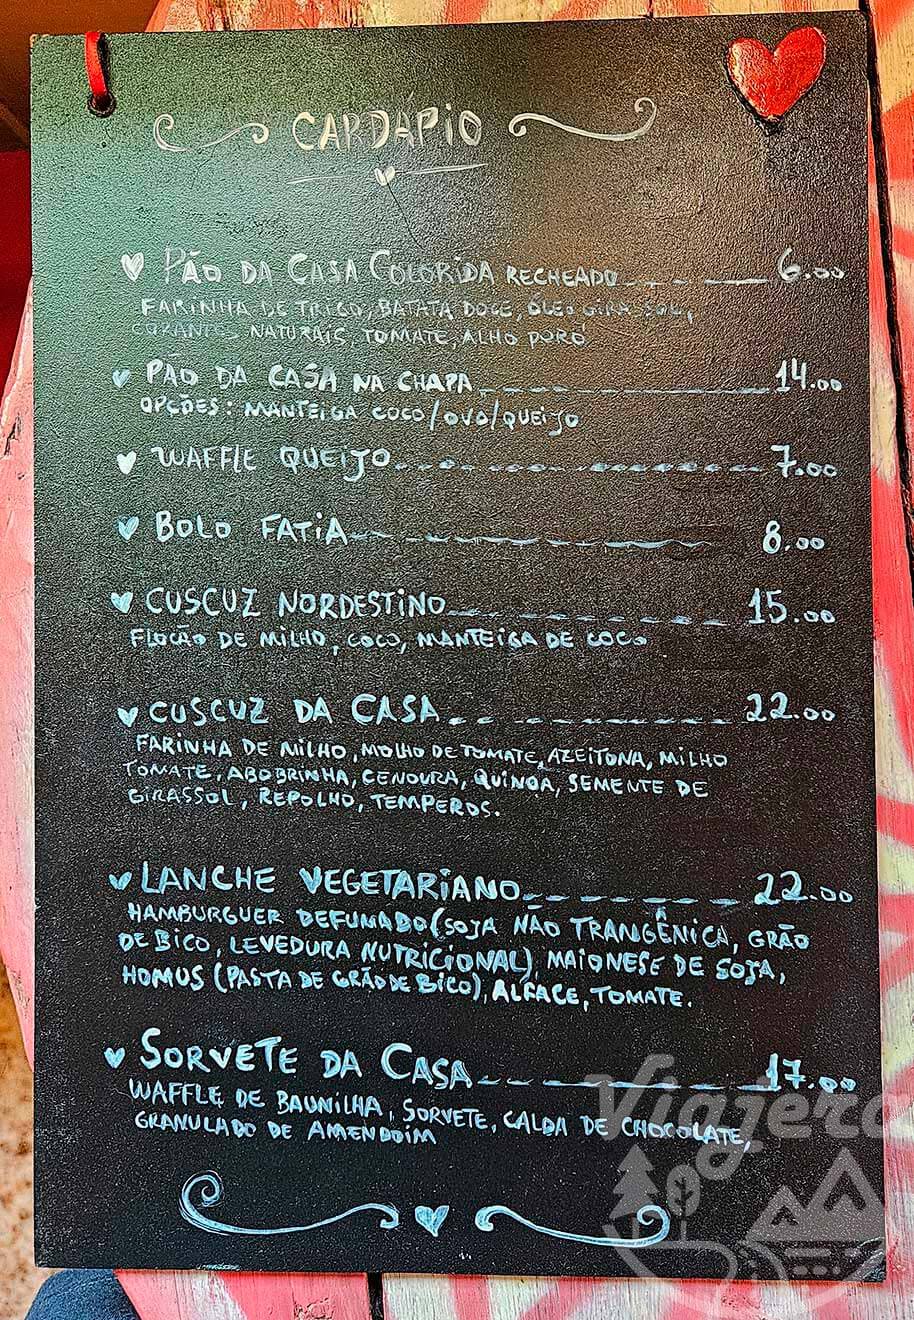 CARDÁPIO
PÃO DA CASA COLORIDA RECHEADO 6.00
FARINHA DE TRIGO, BATATA DOCE, ÓLEO GIRASSOL,
CORANTES NATURAIS, TOMATE, ALHO PORÓ
PÃO DA CASA NA CHAPA 14.00
OPÇÕES: MANTEIGA COCO/OVO/QUEIJO
WAFFLE QUEIJO 7.00
BOLO FATIA 8.00
CUSCUZ NORDESTINO 15.00
FLOCÃO DE MILHO, COCO, MANTEIGA DE COCO
CUSCUZ DA CASA 22.00
FARINHA DE MILHO, MOLHO DE TOMATE, AZEITONA, MILHO
TOMATE, ABOBRINHA, CENOURA, QUINOA, SEMENTE DE
GIRASSOL, REPOLHO, TEMPEROS.
LANCHE VEGETARIANO 22.00
HAMBURGUER DEFUMADO (SOJA NÃO TRANGÊNICA, GRÃO
DE BICO, LEVEDURA NUTRICIONAL), MAIONESE DE SOJA,
HOMUS (PASTA DE GRÃO DE BICO), ALFACE, TOMATE.
SORVETE DA CASA 17.00
WAFFLE DE BAUNILHA, SORVETE, CALDA DE CHOCOLATE,
GRANULADO DE AMENDOIM